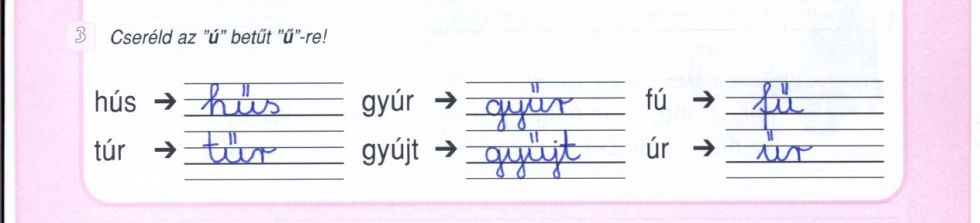 3 Cseréld az "ú" betűt "ű"-re!
hús → hűs gyúr → gyűr fú → fű
túr → tűr gyújt → gyűjt úr → űr